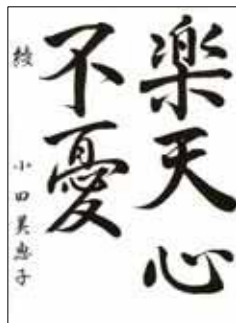 楽天心
不憂
綾 小田美恵子